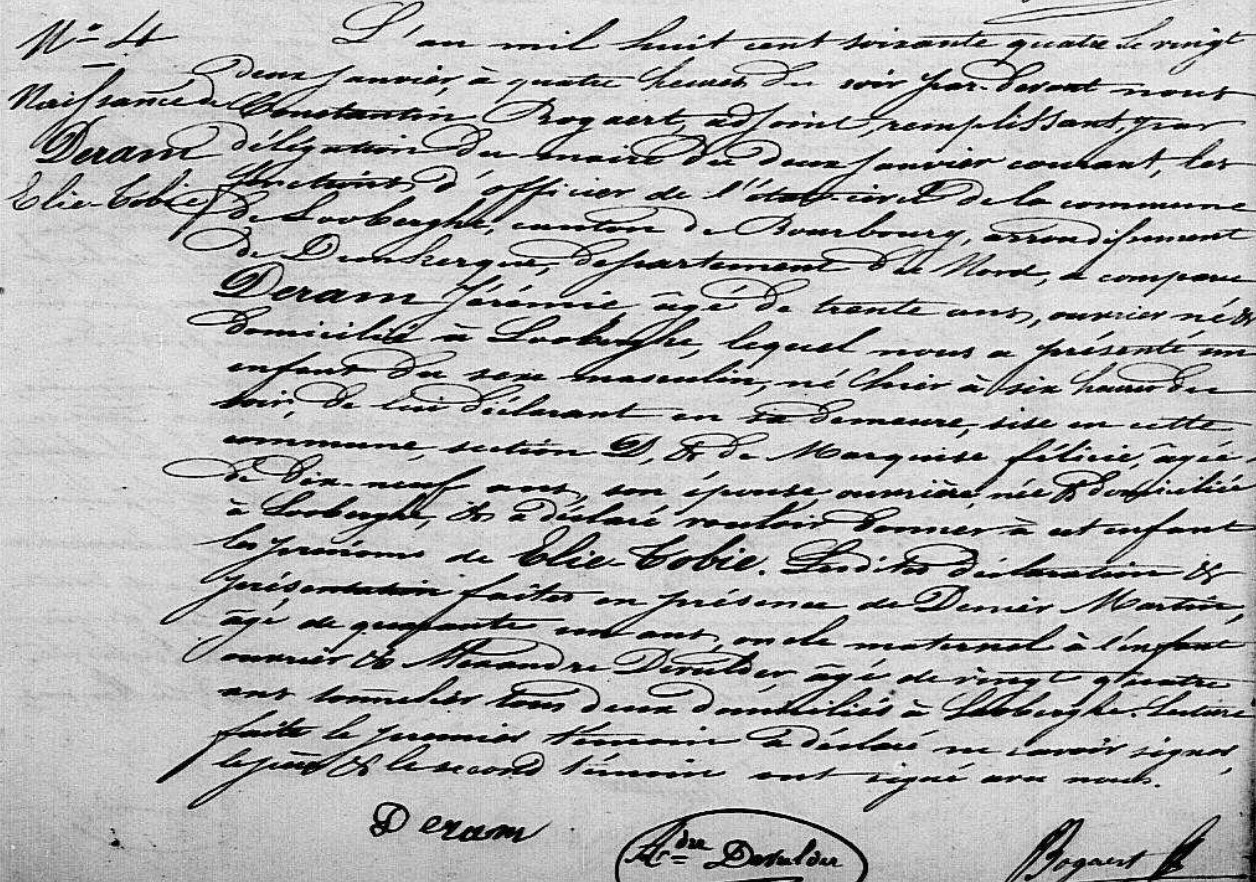 N° 4
Naissance de
Deram
Elie-Tobie
L'an mil huit cent soixante quatre le vingt
deux janvier, à quatre heures du soir par-devant nous
Constantin Bogaert, adjoint, remplissant, par
délégation du maire du deux janvier courant, les
fonctions d'officier de l'état-civil de la commune
de Looberghe, canton de Bourbourg, arrondissement
de Dunkerque, département du Nord, a comparu
Deram Jérémie âgé de trente ans, ouvrier né &
domicilié à Looberghe, lequel nous a présenté un
enfant du sexe masculin, né hier à six heures du
soir, de lui déclarant en sa demeure, sise en cette
commune, section D, & de Marquise félicie, âgée
de dix-neuf ans, son épouse ouvrière née & domiciliée
à Looberghe, & a déclaré vouloir donner à cet enfant
les prénoms de Elie-Tobie. Lesdites déclaration &
présentation faites en présence de Martin,
âgé de quarante un ans, oncle maternel à l'enfant
ouvrier & Alexandre Devulder âgé de vingt quatre
ans tonnelier tous deux domiciliés à Looberghe. Lecture
faite le premier témoin a déclaré ne savoir signer,
le père & le second témoin ont signé avec nous.
Deram
Adre Devulder
Bogaert